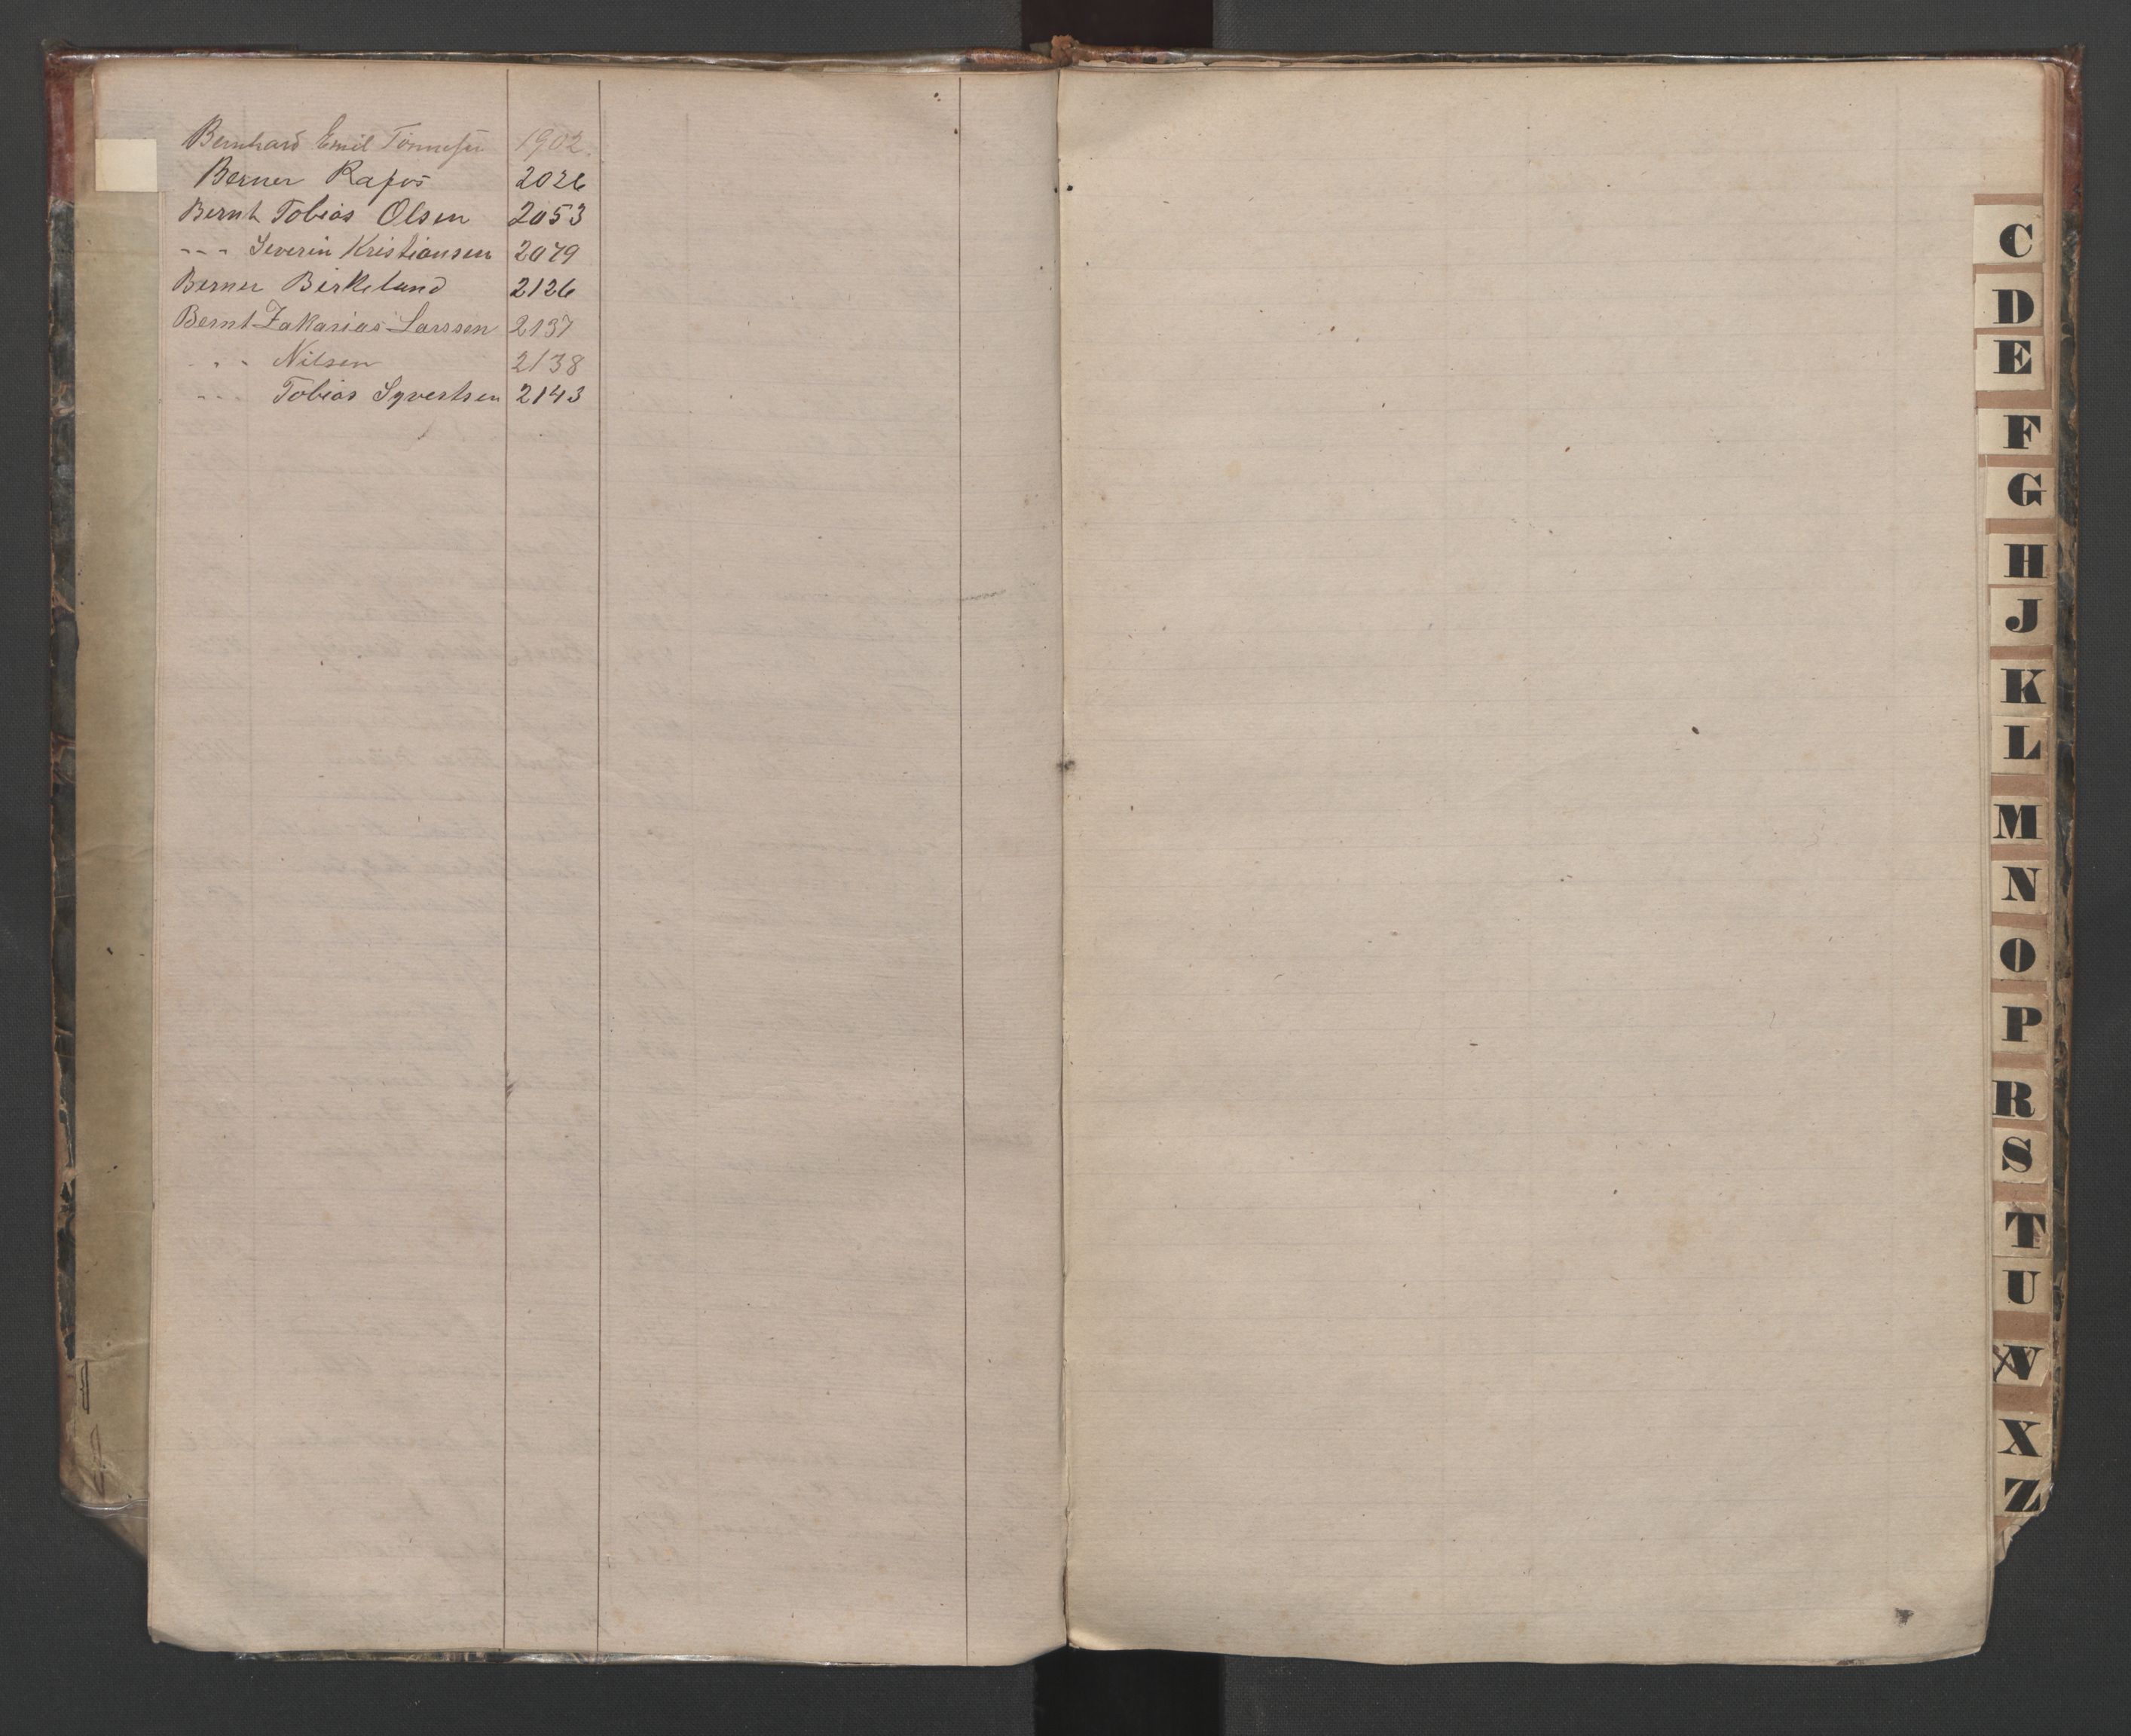 Bernhard Emil Tönnesen 1902.
Berner Rafos 2026
Bernt Tobias Olsen 2053
--- Severin Kristiansen 2079
Berner Birkeland 2126
Bernt Zakarias Larssen 2137
- - Nilsen 2138
--- Tobias Syvertsen 2143
C
D
E
F
G
H
J
K
L
M
N
O
P
R
S
T
U
V
X
Z